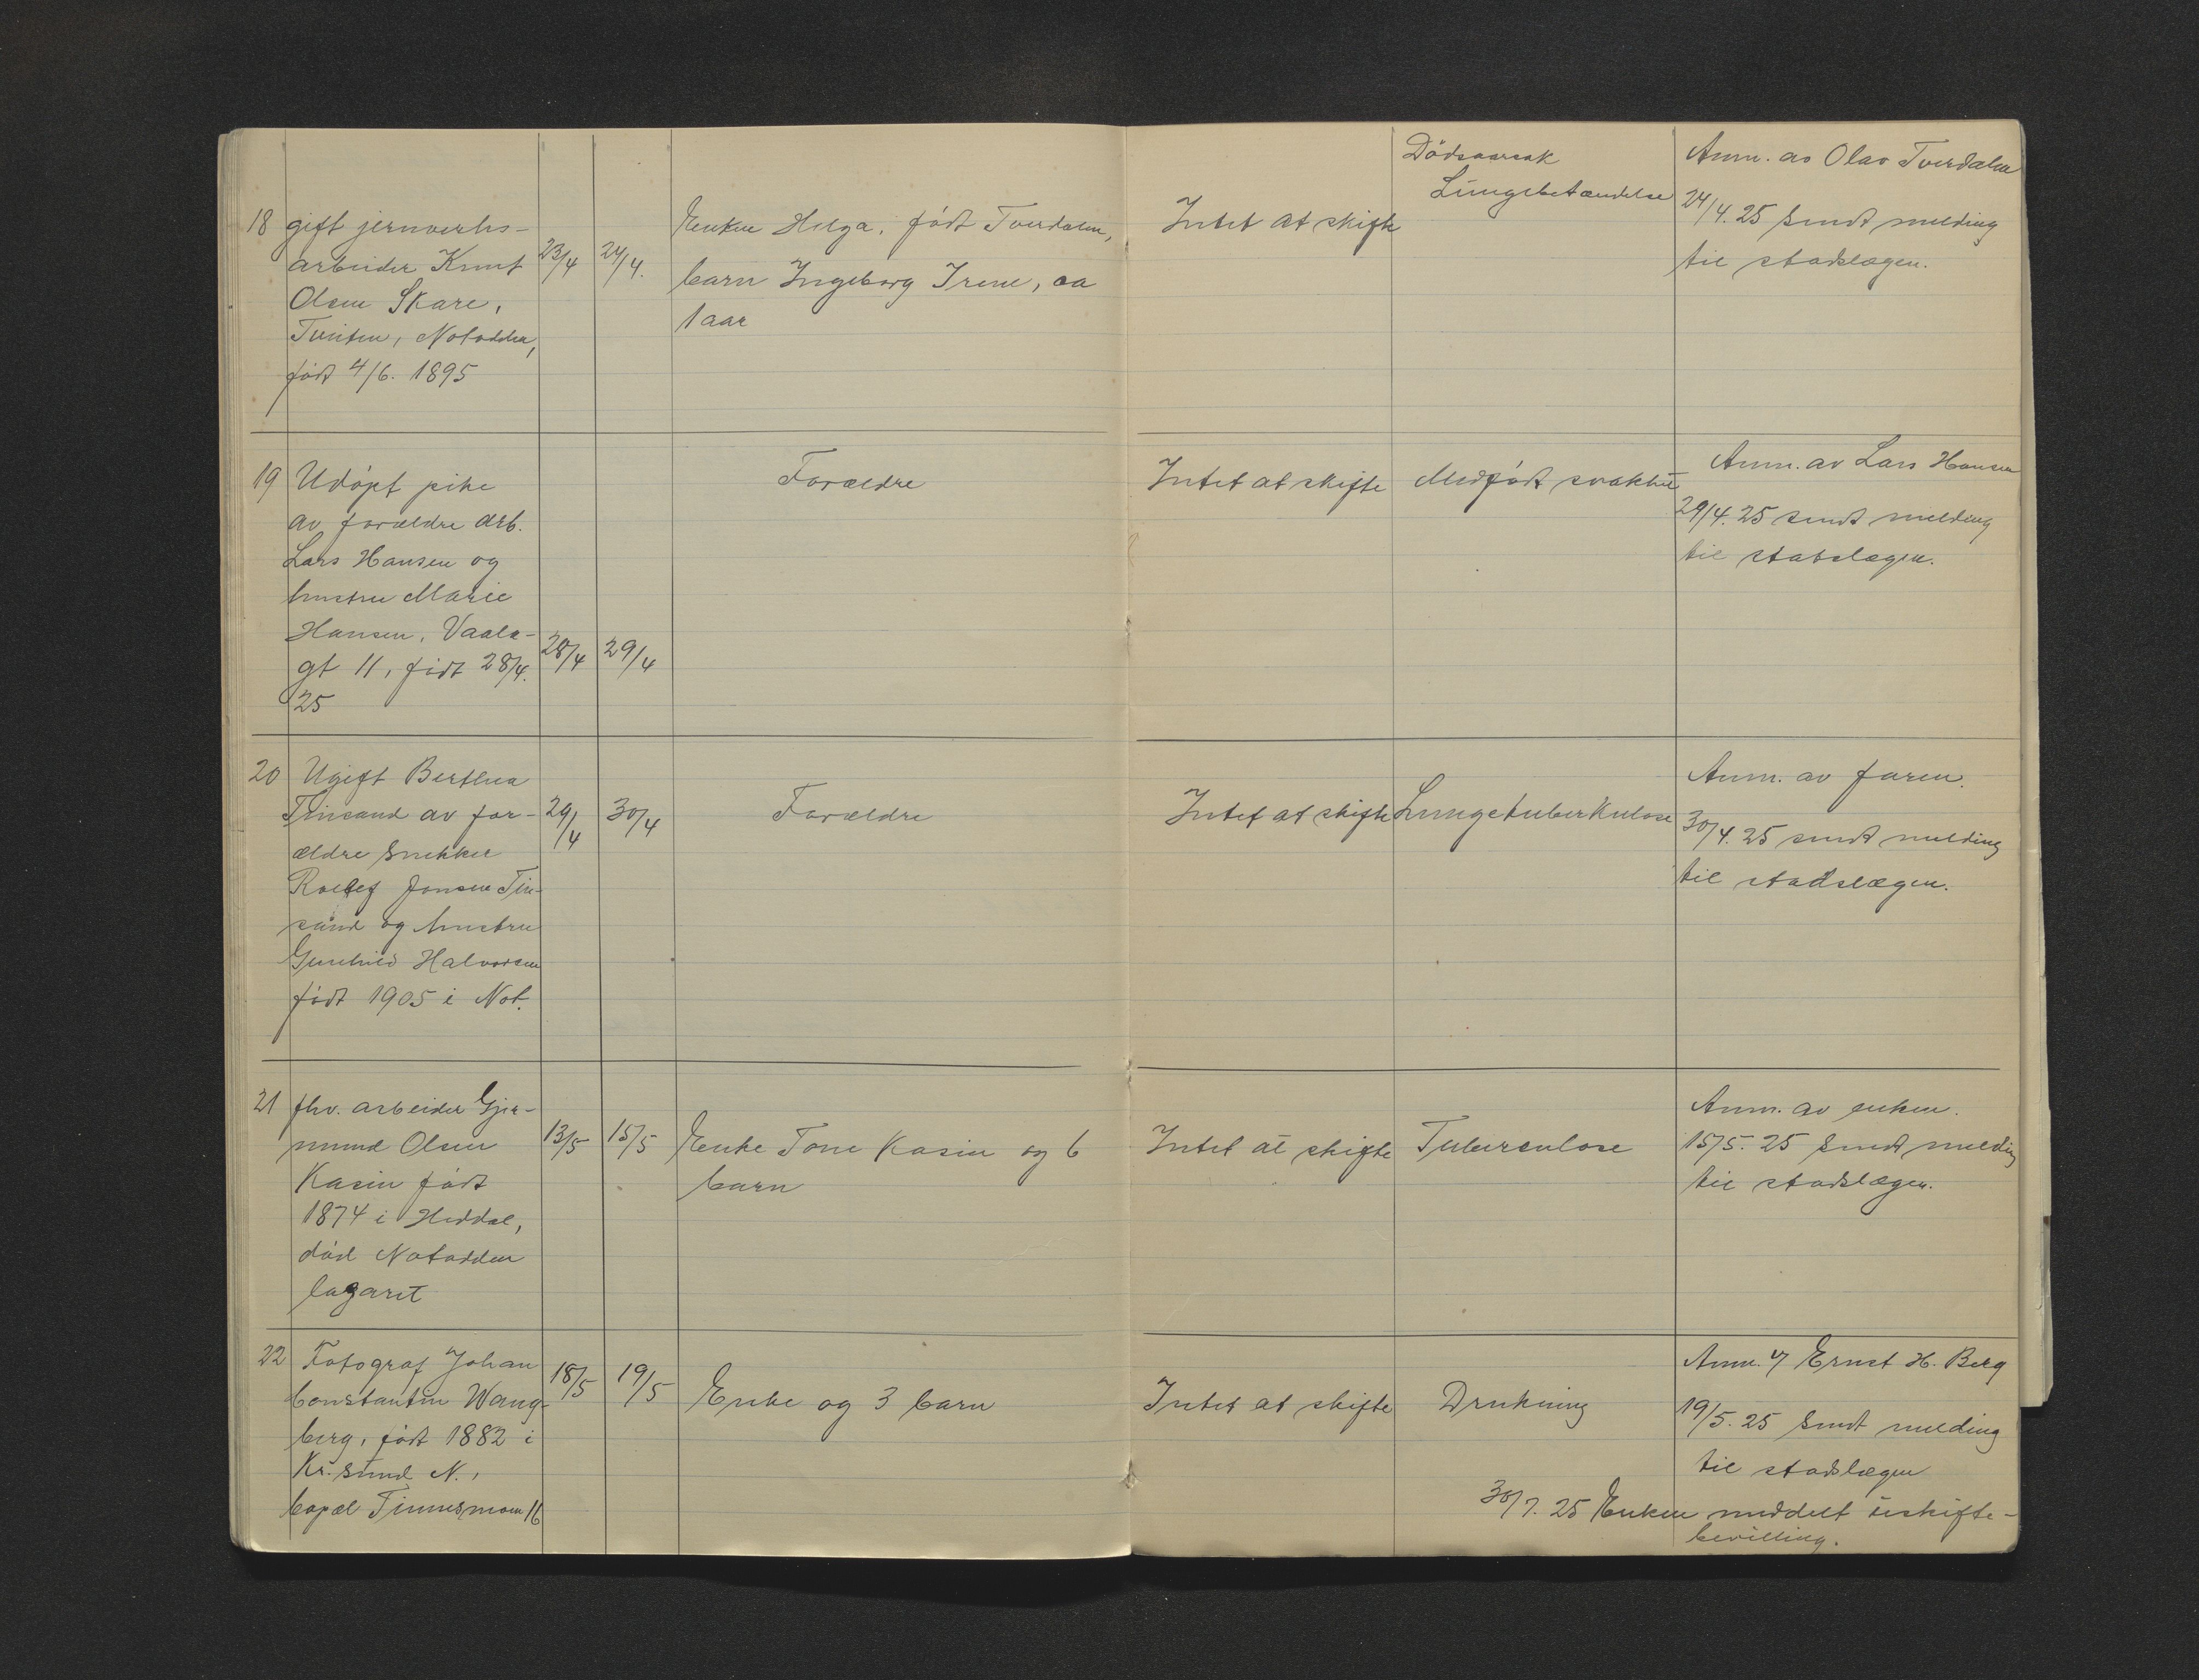 Dödsaarsak
Lungebetændelse
Anm. av Olav Tverdalen
24/4. 25 sendt melding
til stadslægen.
18 gift jernverks-
arbeider Knut
Olsen Skare,
Tveiten, Notodden,
født 4/6. 1895
23/4 24/4.
Enken Helga, født Tverdalen,
barn Ingeborg Irene, ca
1 aar
Intet at skifte
19 Udøpt pike
av forældre arb.
Lars Hansen og
hustru Marie
Hansen, Vaala-
gt 11, født 28/4.
25
28/4 29/4
Forældre
Intet at skifte
Medfødt svakhet
Anm. av Lars Hansen
29/4. 25 sendt melding
til stadslægen.
20 Ugift Berthea
Tinsand av for-
ældre Snekker
Roelef Jonsen Tin-
sand og hustru
Gunhild Halvorsen
født 1905 i Not.
29/4 30/4
Forældre
Intet at skifte
Lungetuberkulose
Anm. av faren.
30/4. 25 sendt melding
til stadslægen.
21 fhv. arbeider Gjer-
mund Olsen
Kasin født
1874 i Heddal,
død Notodden
lazaret
13/5 15/5
Enke Tone Kasin og 6
barn
Intet at skifte
Tuberculose
Anm. av enken.
15/5. 25 sendt melding
til stadslægen.
22 Fotograf Johan
Constantin Wang-
berg, født 1882 i
Kr.sund N.,
bopæl Tinnesmoen 16
18/5 19/5
Enke og 3 barn
Intet at skifte
Drukning
Anm. v/ Ernst H. Berg
19/5. 25 sendt melding
til stadslægen
30/7. 25 Enken meddelt uskifte-
bevilling.